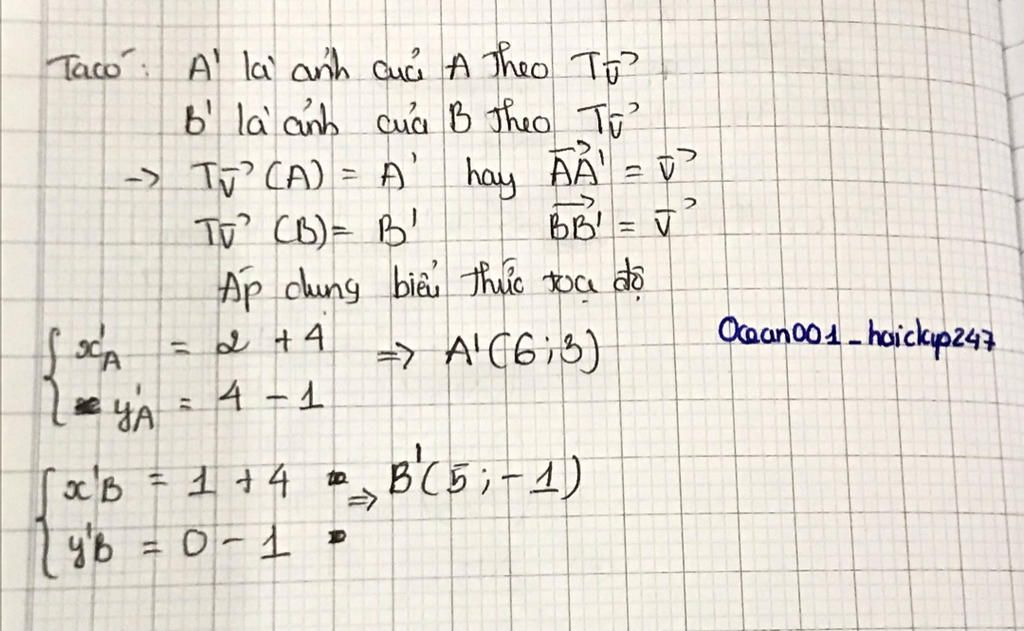 Ta có: A' là ảnh của A theo Tv⃗
B' là ảnh của B theo Tv⃗
-> Tv⃗ (A) = A' hay AA'⃗ = v⃗
Tv⃗ (B) = B' BB'⃗ = v⃗
Áp dụng biểu thức toạ độ
{ x'A = 2 + 4 => A'(6;3)
y'A = 4 - 1
Ocean001_haickyp247
{ x'B = 1 + 4 => B'(5;-1)
y'B = 0 - 1